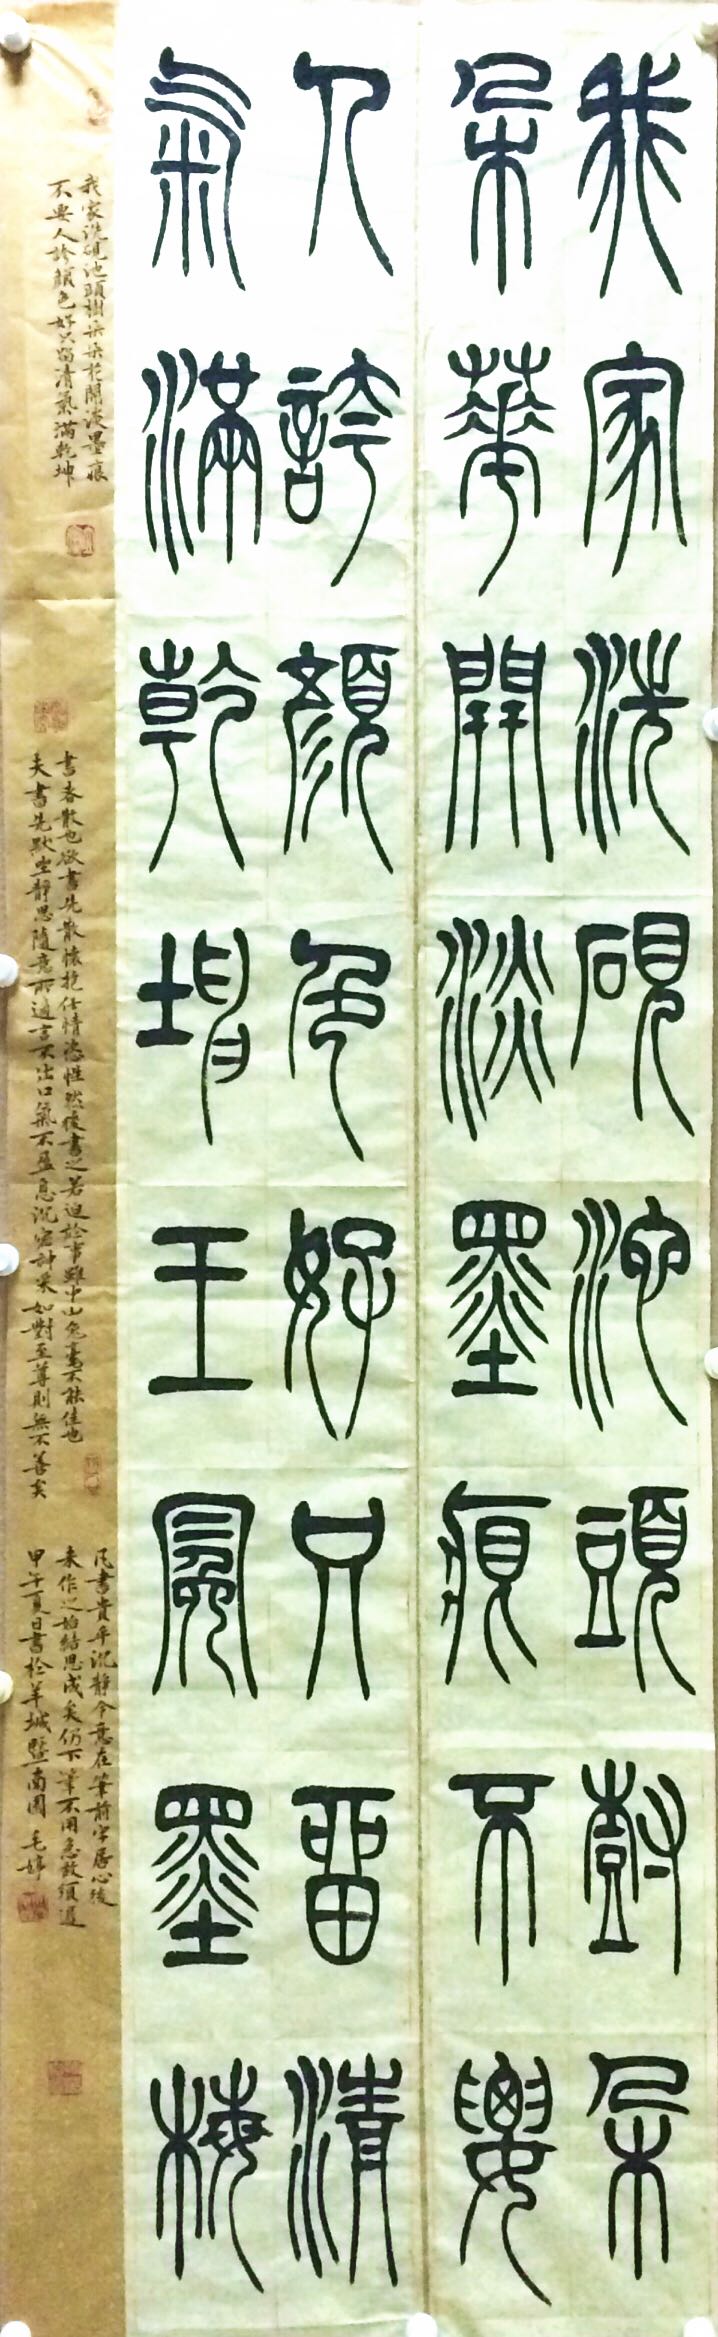 我家洗硯池頭樹朵
朵華開淡墨痕不要
人誇顏色好只畱清
氣滿乾坤王冕墨梅
我家洗硯池頭樹朵朵花開淡墨痕
不要人誇顏色好只留清氣滿乾坤
書者散也欲書先散懷抱任情恣性然後書之若迫於事雖中山兔毫不能佳也
夫書先默坐靜思隨意所適言不出口氣不盈息沉密神采如對至尊則無不善矣
凡書貴乎沉靜令意在筆前字居心後
未作之始結思成矣仍下筆不用急故須遲
甲午夏日書於羊城暨南園 毛婷